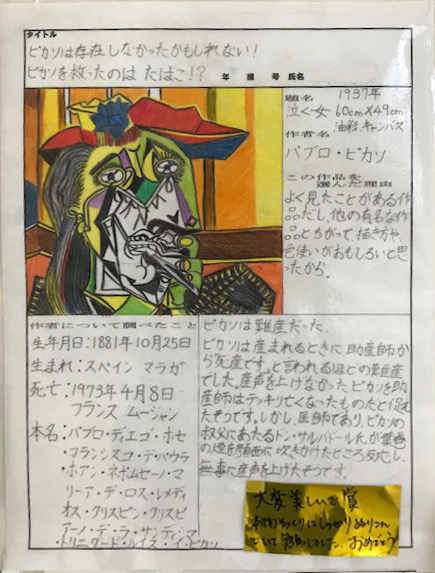 タイトル
ピカソは存在しなかったかもしれない!
ピカソを救ったのは たばこ!?
年 組 号 氏名
題名 1937年
泣く女 60cm×49cm
油彩、キャンバス
作者名
パブロ・ピカソ
この作品を
選んだ理由
よく見たことがある作
品だし、他の有名な作
品とちがって、描き方や、
色使いがおもしろいと思
ったから。
作者について調べたこと
生年月日:1881年10月25日
生まれ:スペイン マラガ
死亡:1973年4月8日
フランス ムージャン
本名:パブロ・ディエゴ・ホセ
フランシスコ・デ・パウラ
・ホアン・ネポムセーノ・マ
リーア・デ・ロス・レメディ
オス・クリスピン・クリスピ
アーノ・デ・ラ・サンディシマ
・トリニダード・ルイス・イ・ピカソ
ピカソは難産だった。
ピカソは産まれるときに助産師か
ら死産です。と言われるほどの難産
でした。産声を上げなかったピカソを助
産師はテッキリ亡くなったものだと捉え
たそうです。しかし、医師であり、ピカソの
叔父にあたるドン・サルバドール氏が葉巻
の煙を顔面に吹きかけたところ反応し、
無事に産声を上げたそうです。
大変美しいで賞
本物そっくりにしっかりぬりこん
でいて感動しました。おめでとう